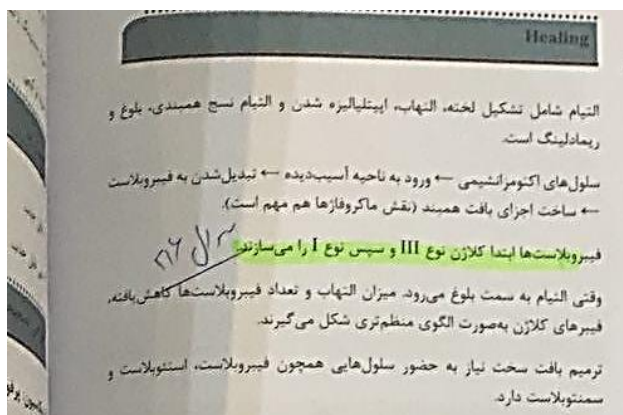 Healing
التیام شامل تشکیل لخته، التهاب، اپیتلیالیزه شدن و التیام نسج همبندی، بلوغ و
ریمادلینگ است.
سلول‌های اکتومزانشیمی ← ورود به ناحیه آسیب‌دیده ← تبدیل‌شدن به فیبروبلاست
← ساخت اجزای بافت همبند (نقش ماکروفاژها هم مهم است).
فیبروبلاست‌ها ابتدا کلاژن نوع III و سپس نوع I را می‌سازند.
سوال
وقتی التیام به سمت بلوغ می‌رود، میزان التهاب و تعداد فیبروبلاست‌ها کاهش‌یافته،
فیبرهای کلاژن به‌صورت الگوی منظم‌تری شکل می‌گیرند.
ترمیم بافت سخت نیاز به حضور سلول‌هایی همچون فیبروبلاست، استئوبلاست و
سمنتوبلاست دارد.